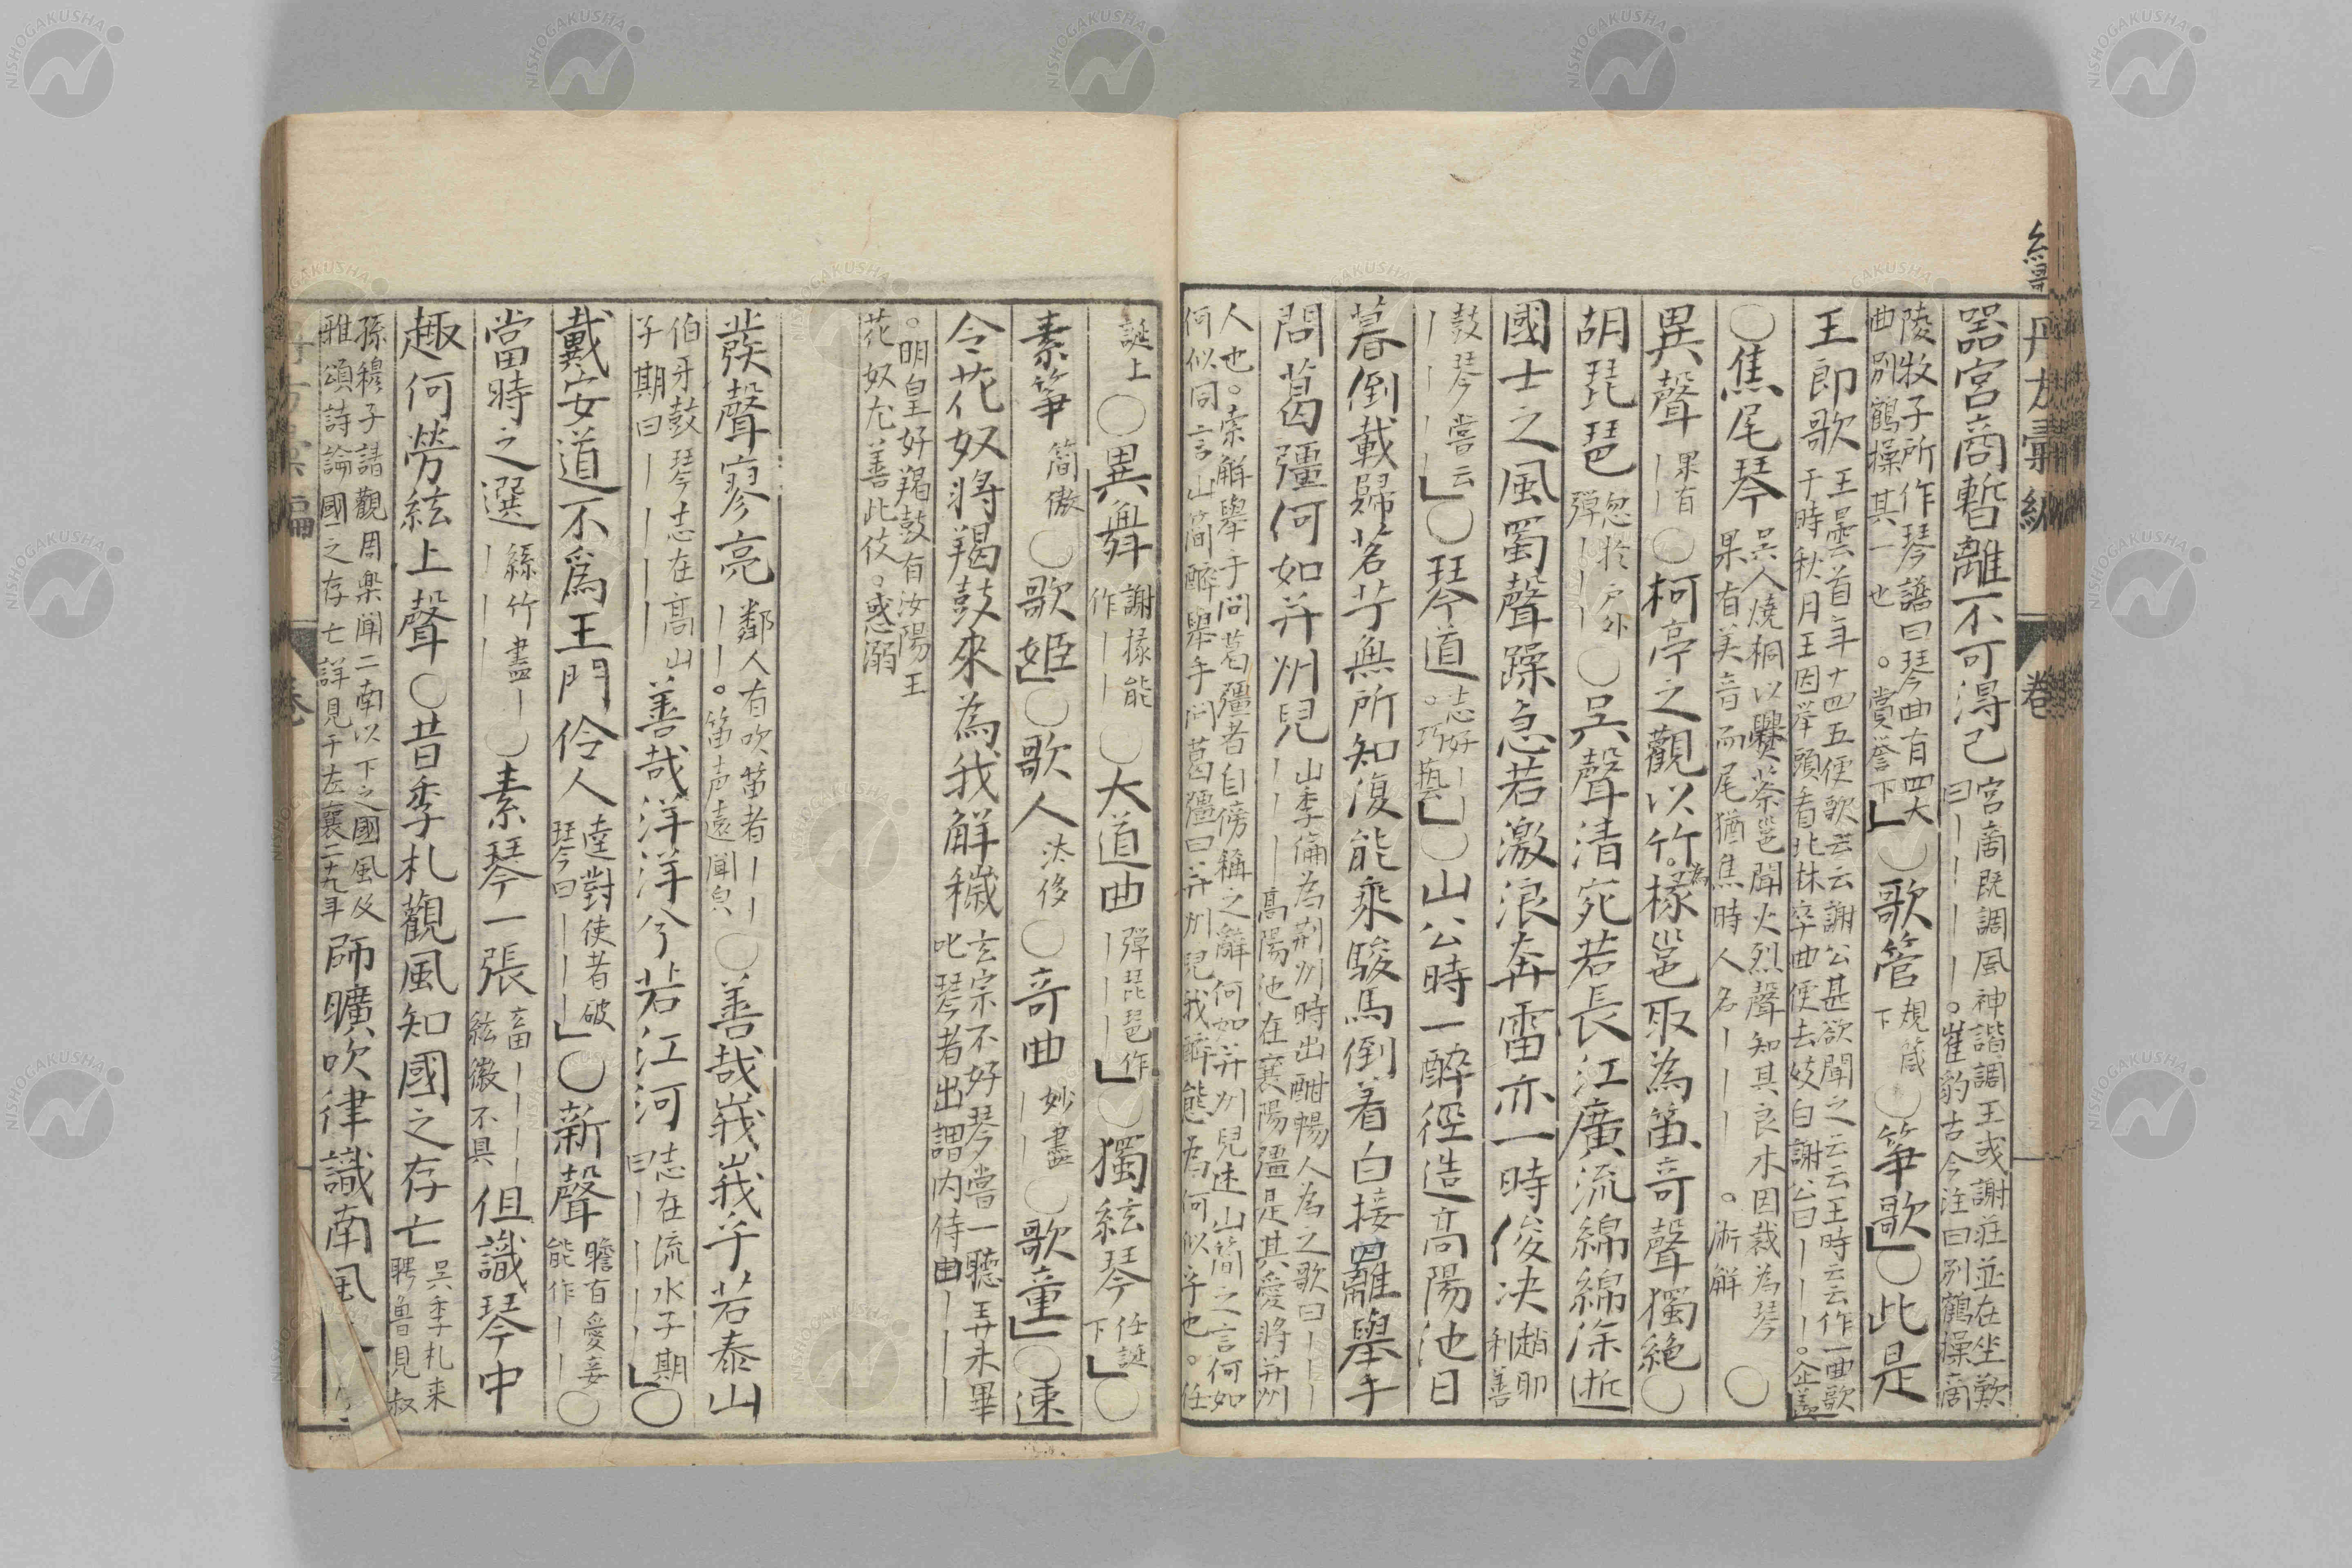 器宮商暫離不可得已 宮商既調風神諧調王彧謝莊並在坐歎
曰｜｜｜｜｜。崔豹古今注曰別鶴操商
陵牧子所作琴譜曰琴曲有四大
曲別鶴操其一也 。賞誉下」〇歌管 規箴下〇箏歌」〇此是
王郎歌 王曇首年十四五便歌云云謝公甚欲聞之云云王時云云作一曲歌
于時秋月王因举頭看北林卒曲便去妓白謝公曰｜｜｜。企羡」
〇焦尾琴 吴人燒桐以爨蔡邕聞火烈聲知其良木因裁為琴
果有美音而尾猶焦時人名｜｜｜｜ 。術解 〇
異聲 果有｜｜〇柯亭之觀以竹為椽邕取為笛奇聲獨絶〇
胡琵琶 忽於户外弾｜｜｜〇吴聲清宛若長江廣流綿綿涂逝
國士之風蜀聲躁急若激浪奔雷亦一時俊决 趙耶利善
鼓琴嘗云｜｜｜｜｜」〇琴道 志好｜｜。巧藝」〇山公時一醉徑造高陽池日
暮倒載歸茗艼無所知復能乘駿馬倒着白接䍦舉手
問葛彊何如并州兒 山季倫為荆州時出酣暢人為之歌曰｜｜｜
｜｜｜高陽池在襄陽彊是其愛將并州
人也。索解舉于问葛彊者自傍稱之辭何如并州兒述山簡之言何如
何似同言山简醉舉手问葛彊曰并州兒我醉態為何似乎也。任
誕上 〇異舞 謝掾能作｜｜〇大道曲 弾琵琶作｜｜｜」〇獨絃琴 任誕下」〇
素箏 簡傲〇歌姫」〇歌人 汰侈〇奇曲 妙盡｜｜〇歌童」〇速
令花奴將羯鼓來為我解穢 玄宗不好琴嘗一聽弄未畢
叱琴者出謂内侍曲｜｜｜｜
。明皇好羯鼓有汝陽王
花奴尤善此伎。惑溺
發聲寥亮 鄰人有吹笛者｜｜
｜｜。笛声遠闻皃〇善哉峩峩乎若泰山
伯牙鼓琴志在高山
子期曰｜｜｜｜｜善哉洋洋兮若江河 志在流水子期
曰｜｜｜｜｜」〇
戴安道不為王門伶人 逵對使者破
琴曰｜｜｜」〇新聲 瞻有愛妾
能作｜｜〇
當時之選 絲竹盡｜
｜｜｜〇素琴一張 畜｜｜｜｜
絃徽不具 但識琴中
趣何勞絃上聲〇昔季札觀風知國之存亡 吴季札来
聘魯見叔
孫穆子請觀周楽闻二南以下之國風及
雅頌詩論國之存亡詳見于左襄二十九年 師曠吹律識南風